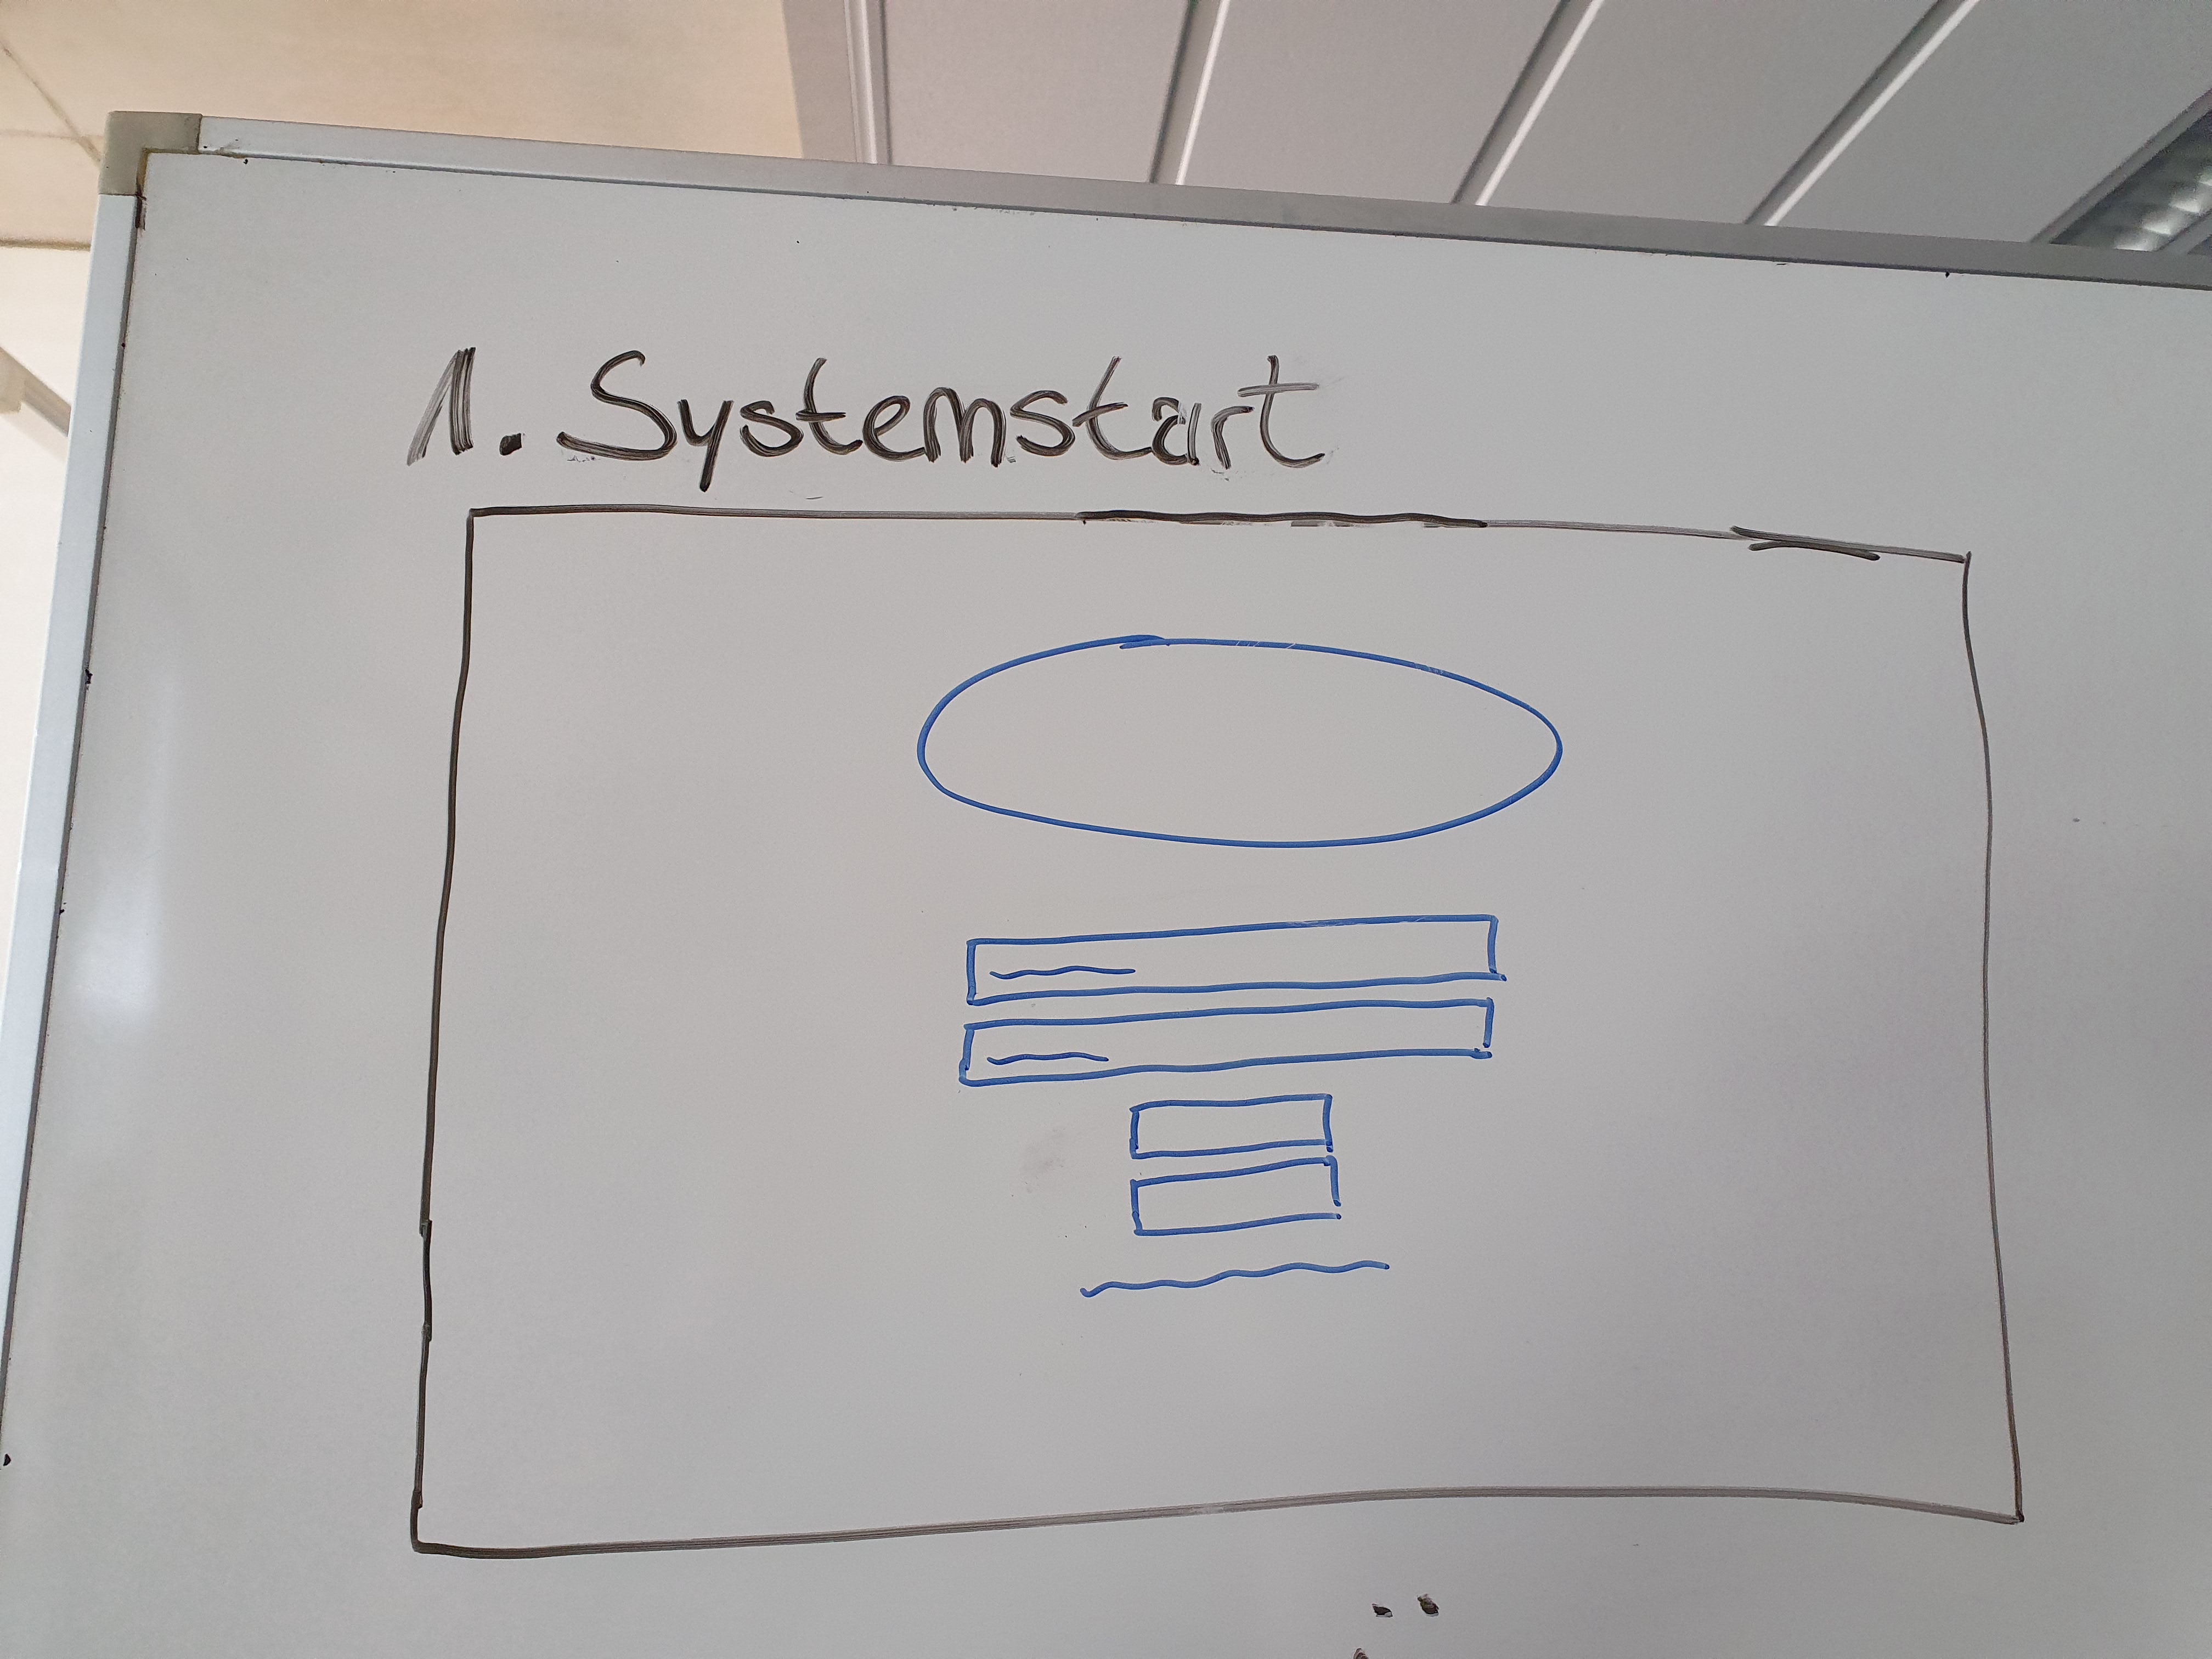 1. Systemstart